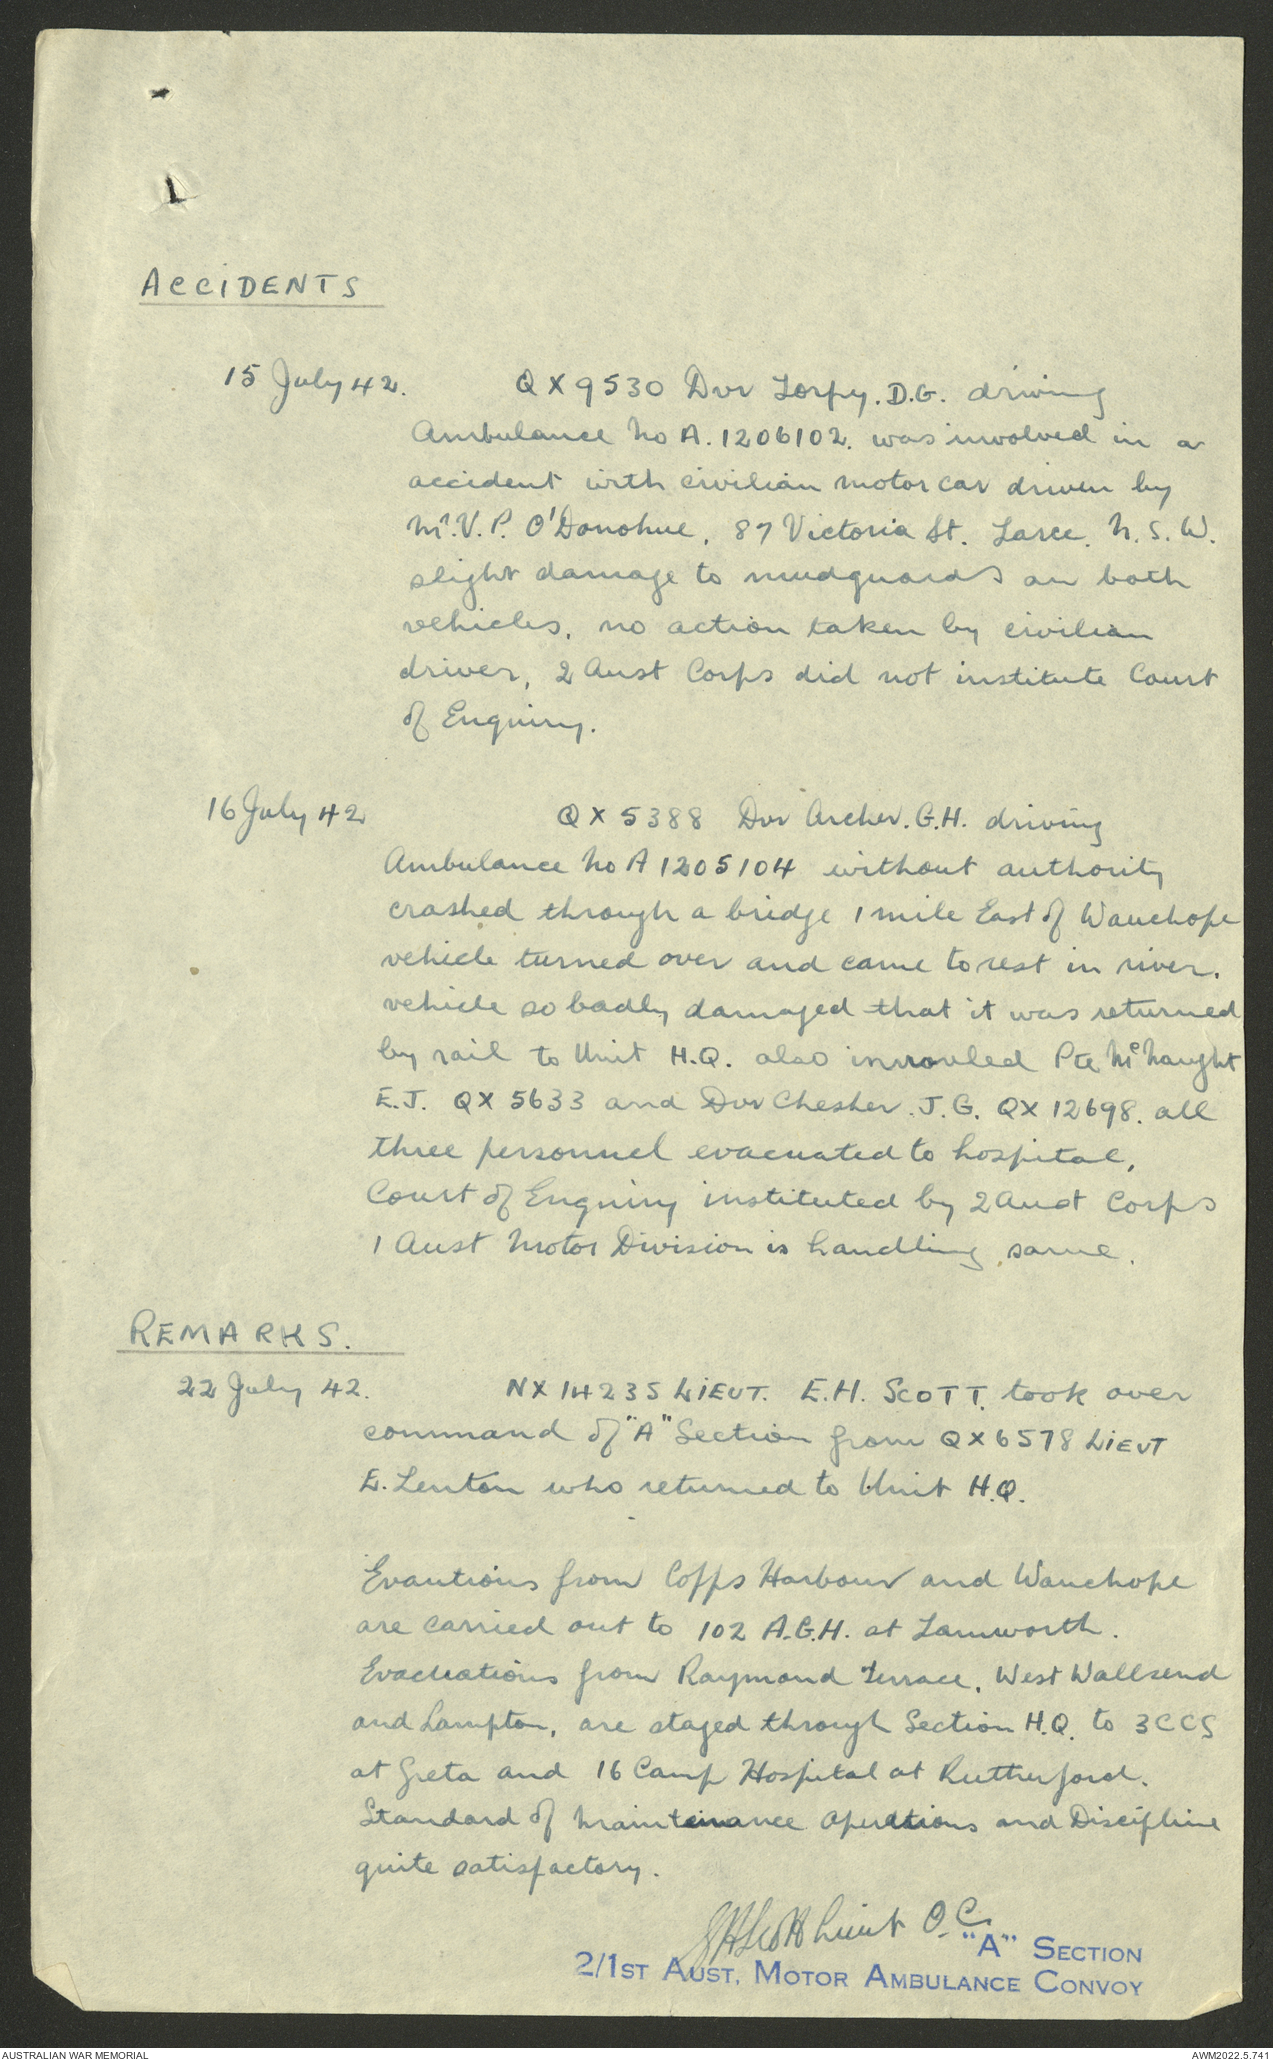 ACCIDENTS
15 July 42. QX9530 Dvr Torpy. D.G. driving
Ambulance No A. 1206102. was involved in a
accident with civilian motor car driven by
Mr. V. P. O'Donohue, 87 Victoria St. Taree. N.S.W.
slight damage to mudguards on both
vehicles, no action taken by civilian
driver, 2 Aust Corps did not institute Court
of Enquiry.
16 July 42 QX 5388 Dvr Archer. G.H. driving
Ambulance No A 1205104 without authority
crashed through a bridge 1 mile East of Wauchope
vehicle turned over and came to rest in river.
vehicle so badly damaged that it was returned
by rail to Unit H.Q. also invovled Pte McNaught
E.J. QX 5633 and Dvr Chesher. J.G. QX 12698. all
three personnel evacuated to hospital,
Court of Enquiry instituted by 2 Aust Corps
1 Aust Motor Division is handling same.
REMARKS.
22 July 42. NX 14235 LIEUT. E.H. SCOTT. took over
command of "A" Section from QX6578 LIEUT
E. Lenton who returned to Unit H.Q.
Evautions from Coffs Harbour and Wauchope
are carried out to 102 A.G.H. at Tamworth.
Evacuations from Raymond Terrace, West Wallsend
and Lampton, are staged through Section H.Q. to 3CCS
at Greta and 16 Camp Hospital at Rutherford.
Standard of Maintenance Operations and Discipline
quite satisfactory.
EHScott Lieut O.C.
"A" SECTION
2/1ST AUST. MOTOR AMBULANCE CONVOY
AUSTRALIAN WAR MEMORIAL AWM2022.5.741